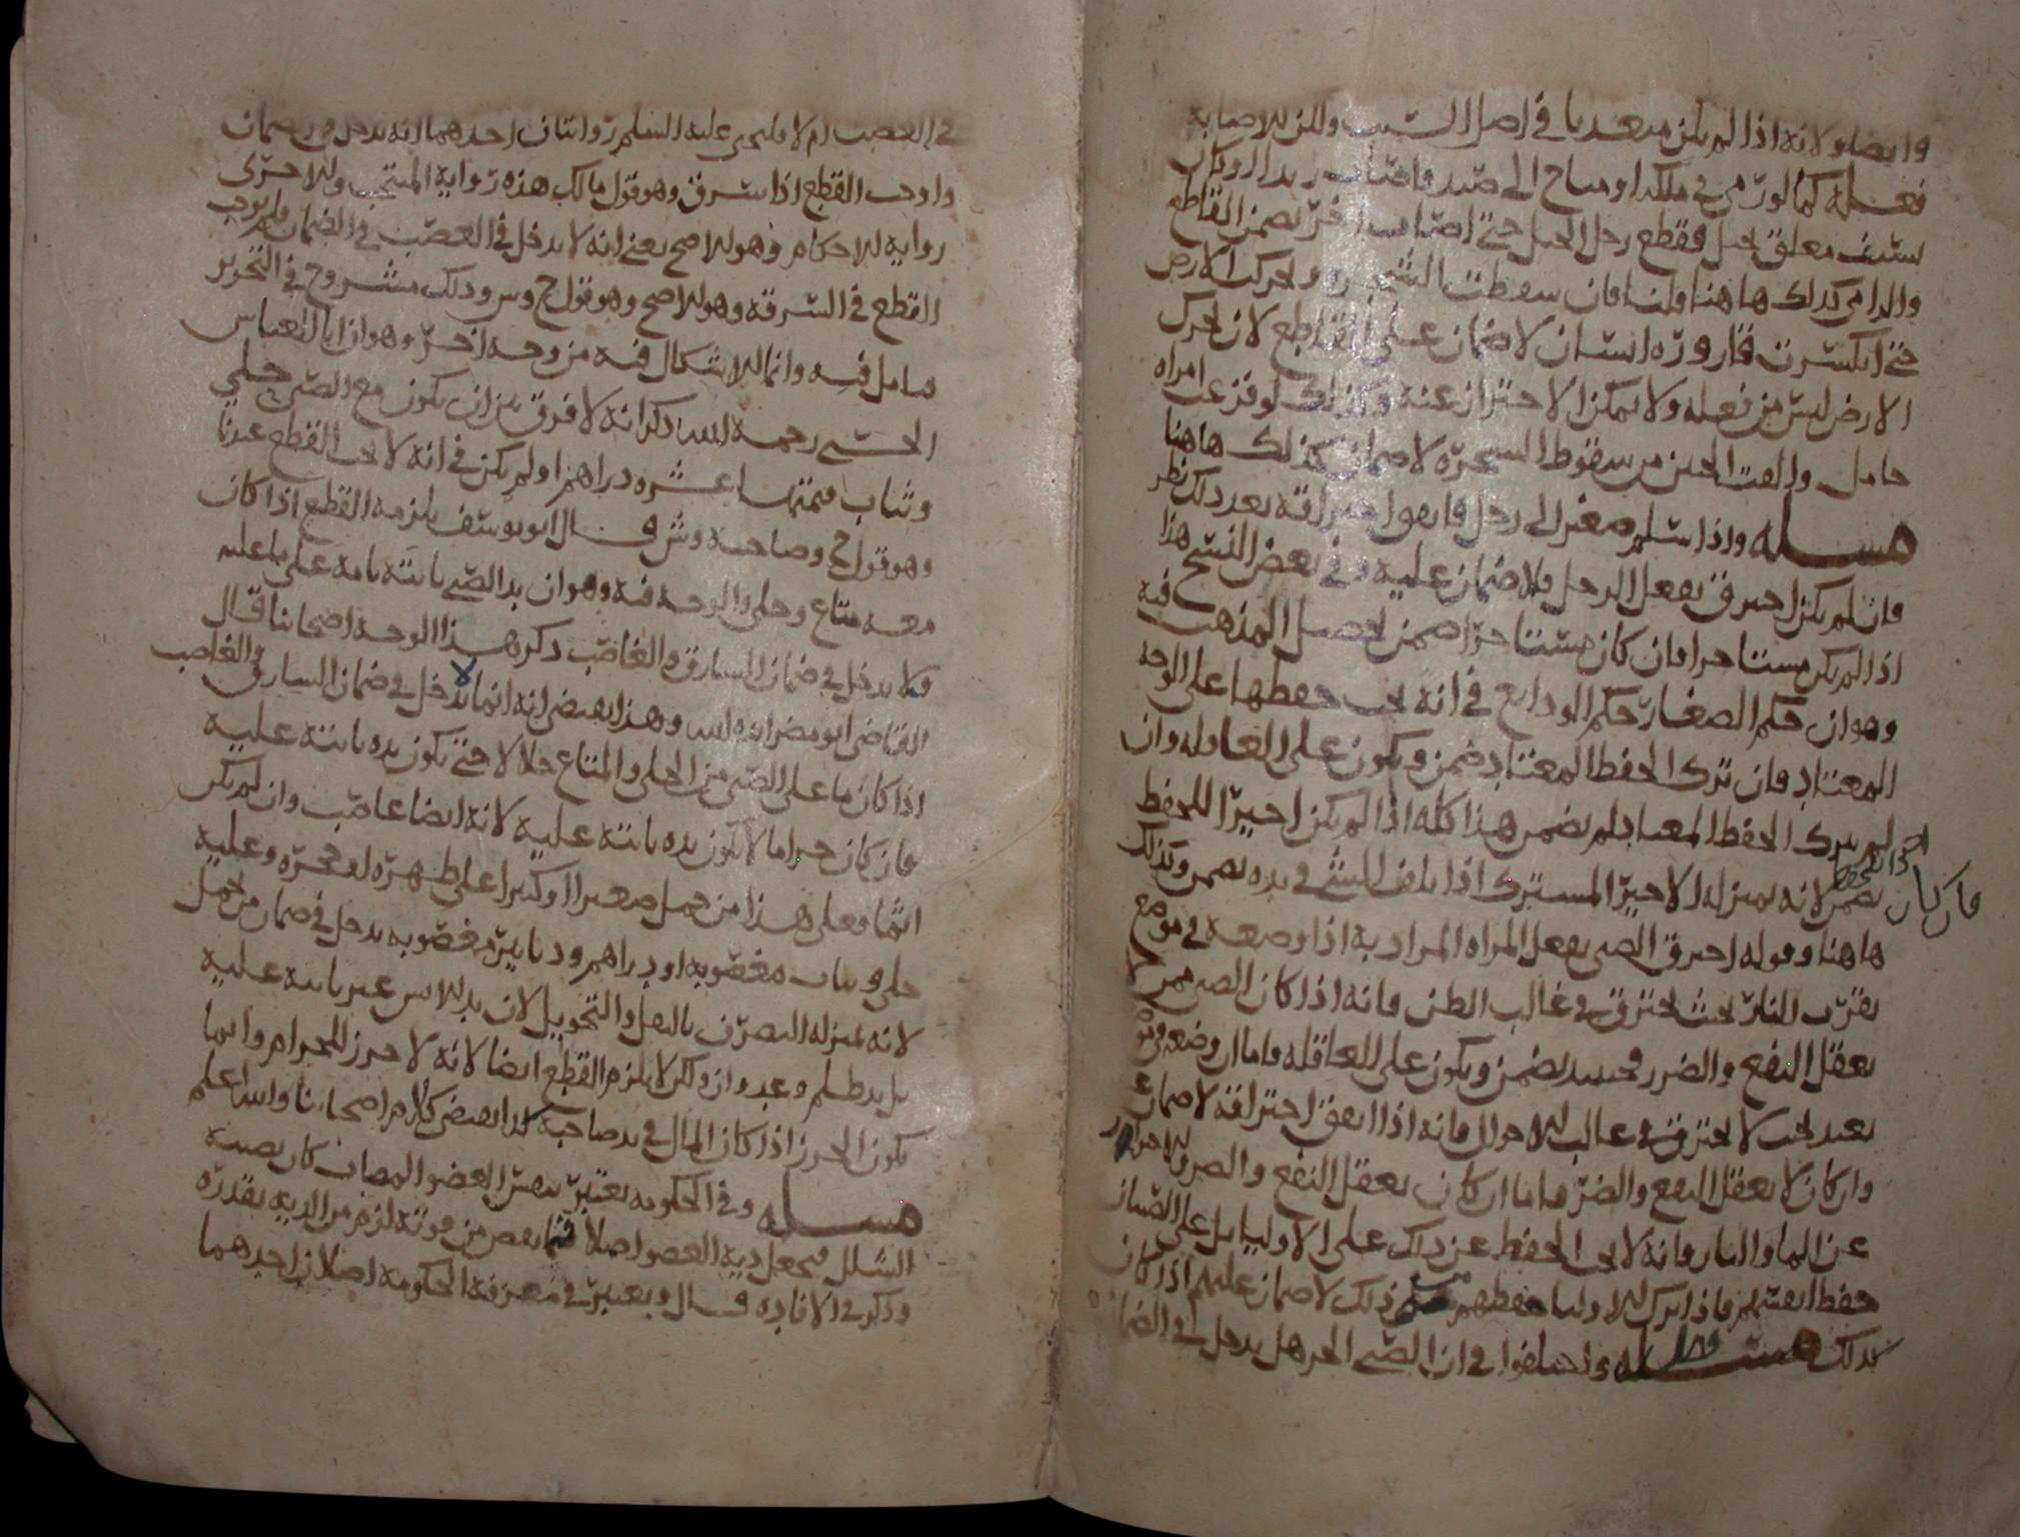 وايضا ولانه اذا لم يكن متعديا في اصل السبب ولكن للاصابة
فعله كما لو رمى في ملكه او مباح الى صيد فاصاب زيدا او وكان
سيف معلق بحبل فقطع رجل الحبل حتى اصاب اخر يضمن القاطع
والرامي كذلك هاهنا قلنا فان سقطت الشجره وتحركت الارض
حتى انكسرت قاروره انسان لا ضمان على القاطع لان تحرك
الارض ليس من فعله ولا يمكن الاحتراز عنه وكذلك لو فزعت امراه
حامل والقت الجنين من سقوط الشجره لا ضمان كذلك هاهنا
مسله واذا سلم صغير الى رجل فاتفق احتراقه بعد ذلك نظر
فان لم يكن احترق بفعل الرجل فلا ضمان عليه وفي بعض النسخ هذا
اذا لم يكن مستاجرا فان كان مستاجرا ضمن تحصيل المذهب فيه
وهو ان حكم الصغار حكم الودايع في انه يجب حفظها على الوجه
المعتاد فان ترك الحفظ المعتاد ضمن ويكون على العاقله وان
لم يترك الحفظ المعتاد لم يضمن هذا كله اذا لم يكن اجيرا للحفظ
فان كان
يضمن لانه بمنزله الاجير المشترك اذا تلف الشي في يده يضمن وكذلك
هاهنا وقوله احترق الصبي بفعل المراه المراد به اذا وضعه في موضع
بقرب النار بحيث يحترق في غالب الظن فانه اذا كان الصبي ممن لا
يعقل النفع والضرر فحينيذ يضمن ويكون على العاقله واما ان وضعه في موضع
بعيد بحيث لا يحترق في غالب الاحوال فانه اذا اتفق احتراقه لا ضمان
وان كان لا يعقل النفع والضر فاما ان كان يعقل النفع والضر
عن الما والنار فانه لا يجب الحفظ عن ذلك على الاوليا بل على الصبيان
حفظ انفسهم فاذا ترك الاوليا حفظهم عن ذلك لا ضمان عليهم اذا كان
كذلك مسله واختلفوا في ان الصبي الحر هل يدخل في الضمان
في الغصب ام لا وليحيى عليه السلم روايتان احدهما انه يدخل في ضمان
واوجب القطع اذا سرق وهو قول مالك هذه رواية المنتخب والاخرى
رواية الاحكام وهو الاصح يعني انه لا يدخل في الغصب في الضمان ولم يوجب
القطع في السرقه وهو الاصح وهو قول ح وس وذلك مشروح في التحرير
تامل فيه وانما الاشكال فيه من وجه اخر وهو ان ابا العباس
الحسني رحمه الله ذكر انه لا فرق بين ان يكون مع الصبي حلي
وثياب قيمتها عشره دراهم او لم يكن في انه لا يجب القطع عندنا
وهو قول ح وصاحبه وش وقال ابو يوسف يلزمه القطع اذا كان
معه متاع وحلي والوجه فيه وهو ان يد الصبي ثابته تامه على ما عليه
فلا يدخل في ضمان السارق والغاصب ذكر هذا الوجه اصحابنا قال
القاضي ابو مضر ايده الله وهذا يقتضي انه انما لا يدخل في ضمان السارق والغاصب
اذا كان ما على الصبي من الحلي والمتاع حلالا حتى يكون يده ثابتة عليه
فان كان حراما لا يكون يده ثابتة عليه لانه ايضا غاصب وان لم يكن
اثما فعلى هذا من حمل صغيرا او كبيرا على ظهره او حجره وعليه
حلي وثياب مغصوبه او دراهم ودنانير مغصوبه يدخل في ضمان من حمل
لانه بمنزله التصرف بالنقل والتحويل لان يد اللابس غير ثابته عليه
بل يد ظلم وعدوان ولكن لا يلزم القطع ايضا لانه لا حرز للحرام وانما
يكون الحرز اذا كان المال في يد صاحبه كذا يقتضي كلام اصحابنا والله اعلم
مسله وفي الحكومه يعتبر العضو المصاب كان نصيبه
الشلل فيجعل دية العضو اصلا فما نقص من قوته لزم من الديه بقدره
وذكر في الافاده قال ويعتبر في معرفة الحكومه اصلان احدهما